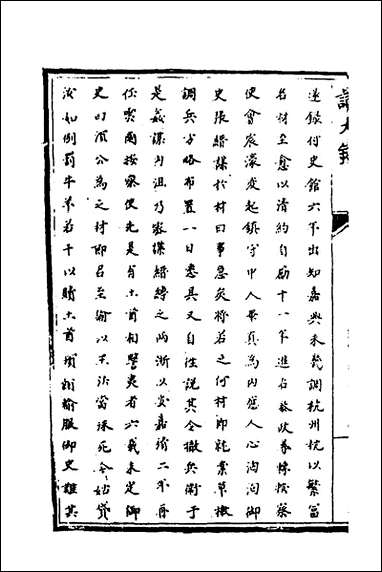 達錄付史館六年出知嘉興未幾調杭州杭以繁富
名材至愈以清約自勵十一年進右參政尋轉按察
使會宸濠變起鎮守中人畢真為內應人心洶洶御
史張縉謀於材曰事急矣將若之何材即就案草檄
調兵方略布置一日悉具又自往說其全撤兵衛于
是姦謀內沮乃密謀縉縛之兩浙以安嘉靖二年再
任雲南按察使先是有土首相讐夷者六載未定御
史以須公為之材即召至諭以王法當殊死今姑貸
汝如例罰牛羊若干以贖土首頃首輸服御史難其